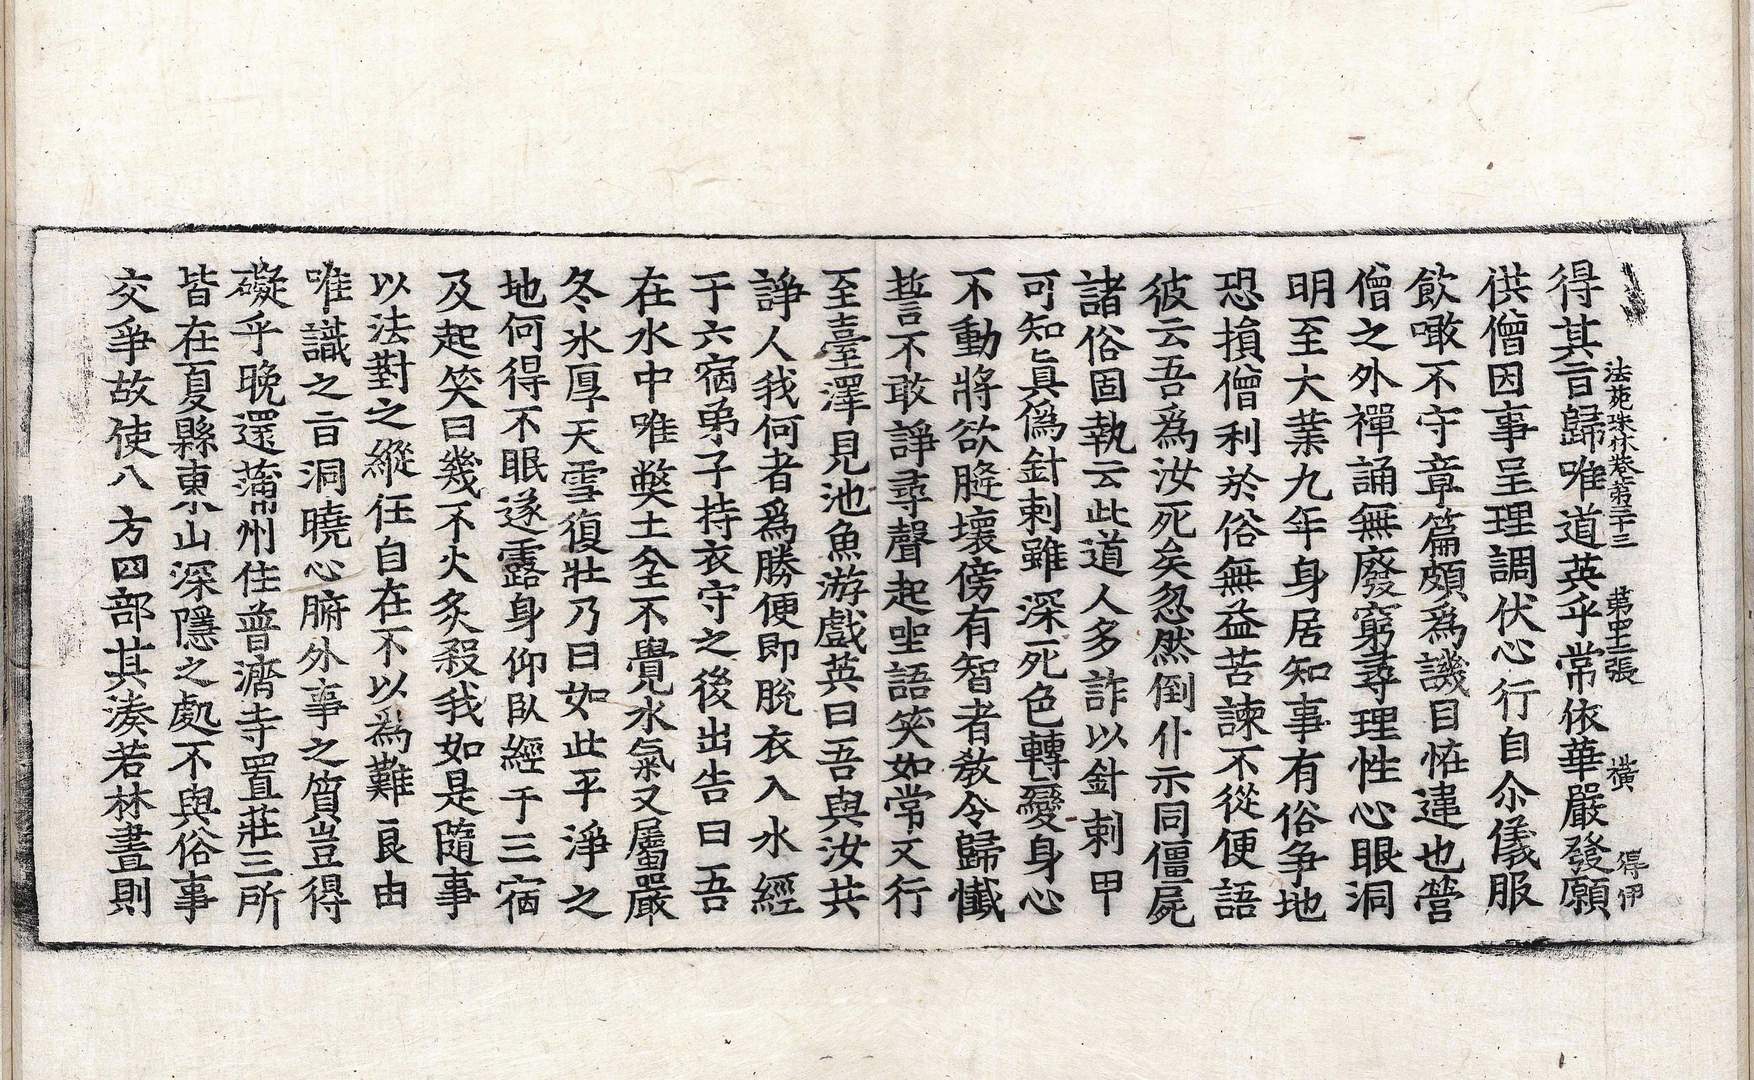 法苑珠林卷第三十三 第四十三張 橫 得伊
得其旨歸唯道英乎常依華嚴發願
供僧因事呈理調伏心行自尒儀服
飲噉不守章篇頗爲譏目恠違也營
僧之外禪誦無廢窮尋理性心眼洞
明至大業九年身居知事有俗争地
恐損僧利於俗無益苦諫不從便語
彼云吾爲汝死矣忽然倒仆示同僵屍
諸俗固執云此道人多詐以針刺甲
可知眞僞針刺雖深死色轉變身心
不動將欲膖壞傍有智者敎令歸懺
誓不敢諍尋聲起坐語笑如常又行
至臺澤見池魚游戲英曰吾與汝共
諍人我何者爲勝便即脫衣入水經
于六宿弟子持衣守之後出告曰吾
在水中唯弊土坌不覺水氣又屬嚴
冬氷厚天雪復壯乃曰如此平淨之
地何得不眠遂露身仰臥經于三宿
及起笑曰幾不火炙殺我如是隨事
以法對之縱任自在不以爲難良由
唯識之旨洞曉心腑外事之質豈得
礙乎晚還蒲州住普濟寺置莊三所
皆在夏縣東山深隱之處不與俗事
交爭故使八方四部其湊若林晝則